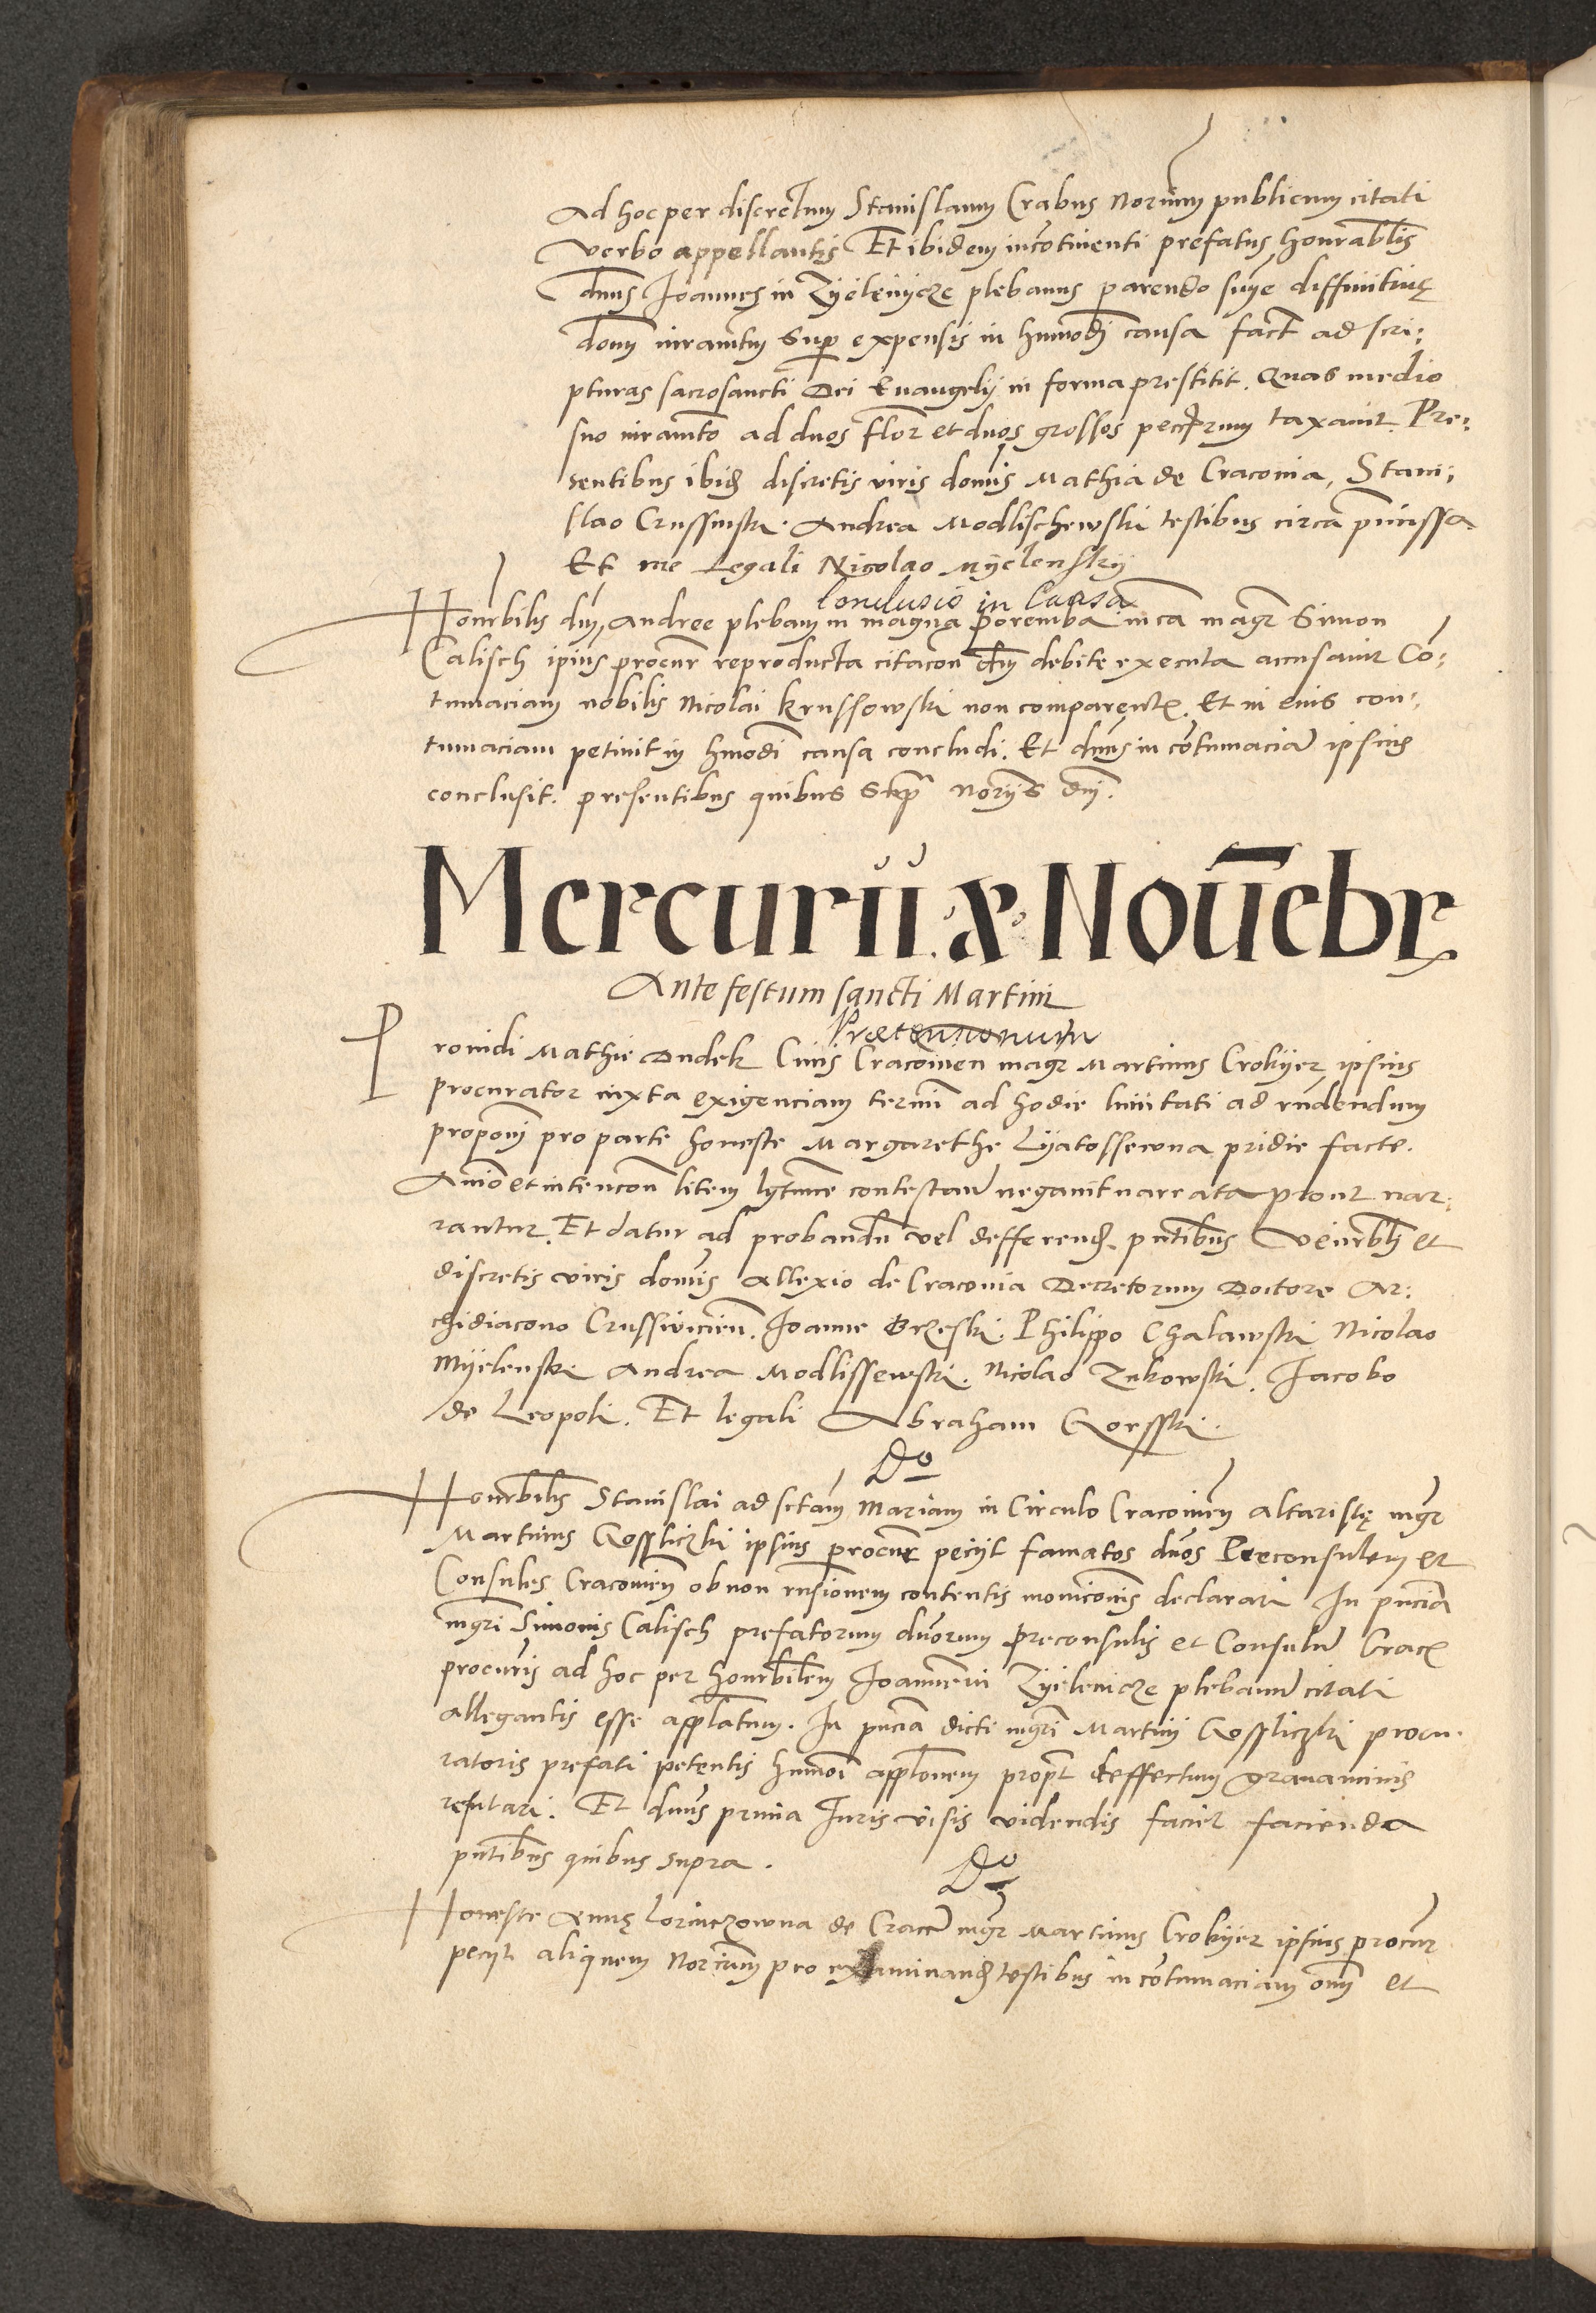 Ad hoc per discretum Stanislaum Crabus Norium publicum citati
verbo appellantis Et ibidem incontinenti prefatus honrablis
dnus Joannes in Zyelenycze plebanus parendo snye diffinitiuę
donu iuramtum Sup expensis in hmnodi causa fact ad scri:
pturas sacrosancti Dei Euangelij in forma prestitit. Quas medio
suo iuramto ad duos flor et duos grossos taxauit. Pre:
sentibus ibid discretis viris domis Mathia de Craconia, Stani:
slao Crussinski. Andrea Modlischewski testibus circa pmissa
Et me Legali Nicolao Myelensky
Conclusio in Causa
Honrbilis dni Andree plebani in magna Poremba in ca magr Simon
Calisch ipius procur reproducta citacon debite executa accusauit Co:
tumaciam nobilis Nicolai Krussowski non comparente. Et in eius con:
tumaciam petiuit in hmodi causa concludi. Et dnus in cotumacia ipsius
conclusit. presentibus quibus Supra Noriis
Mercurii .x. Nouebr
Ante festum sancti Martini
Prouidi Mathie Dudek Ciuis Cracouien magr Martinus Crokyer ipsius
procurator iuxta exigenciam termi ad hodie limitati ad rndendum
proponi pro parte honeste Margarethe Lyatossewna pridie facte.
Animo et intencon litem lgtime contestan negauit narrata prout nar:
rantur. Et datur ad probandu vel defferend. pntibus Venrbli et
discretis viris domis Allexio de Craconia Decretorum Doctore Ar:
chidiacono Crussuicien. Joanne Brzeski. Philippo Chalawski Nicolao
Myelenski Andrea Modlissewski. Nicolao Zukowski. Jacobo
de Leopoli. Et legali Abraham Gorsski.
Do
Honrbilis Stanislai ad sctam Mariam in Circulo Cracouien altaristę mgr
Martinus Gossliczki ipsius procur peciit famatos dnos Preconsulem et
Consules Cracouien ob non rnsionem contentis moniconis declarari In pncia
mgri Simonis Calisch prefatorum dnorum preconsulis et Consulu Crac
procuris ad hoc per honrbilem Joannem in Zyelenicze plebanu citati
allegantis esse applatum. In pncia dicti mgri Martini Gossliczki procu.
ratoris prefati petentis hmnoi applonem propt deffectum grauaminis
refutari. Et dnus primia Juris visis videndis faciet facienda
pntibus quibus supra.
Do
Honeste Annę Lorinczowna de Crac mgr Martinus Crokyer ipsius procur
peciit aliquem Norium pro examinand testibus in cotumaciam oniu et